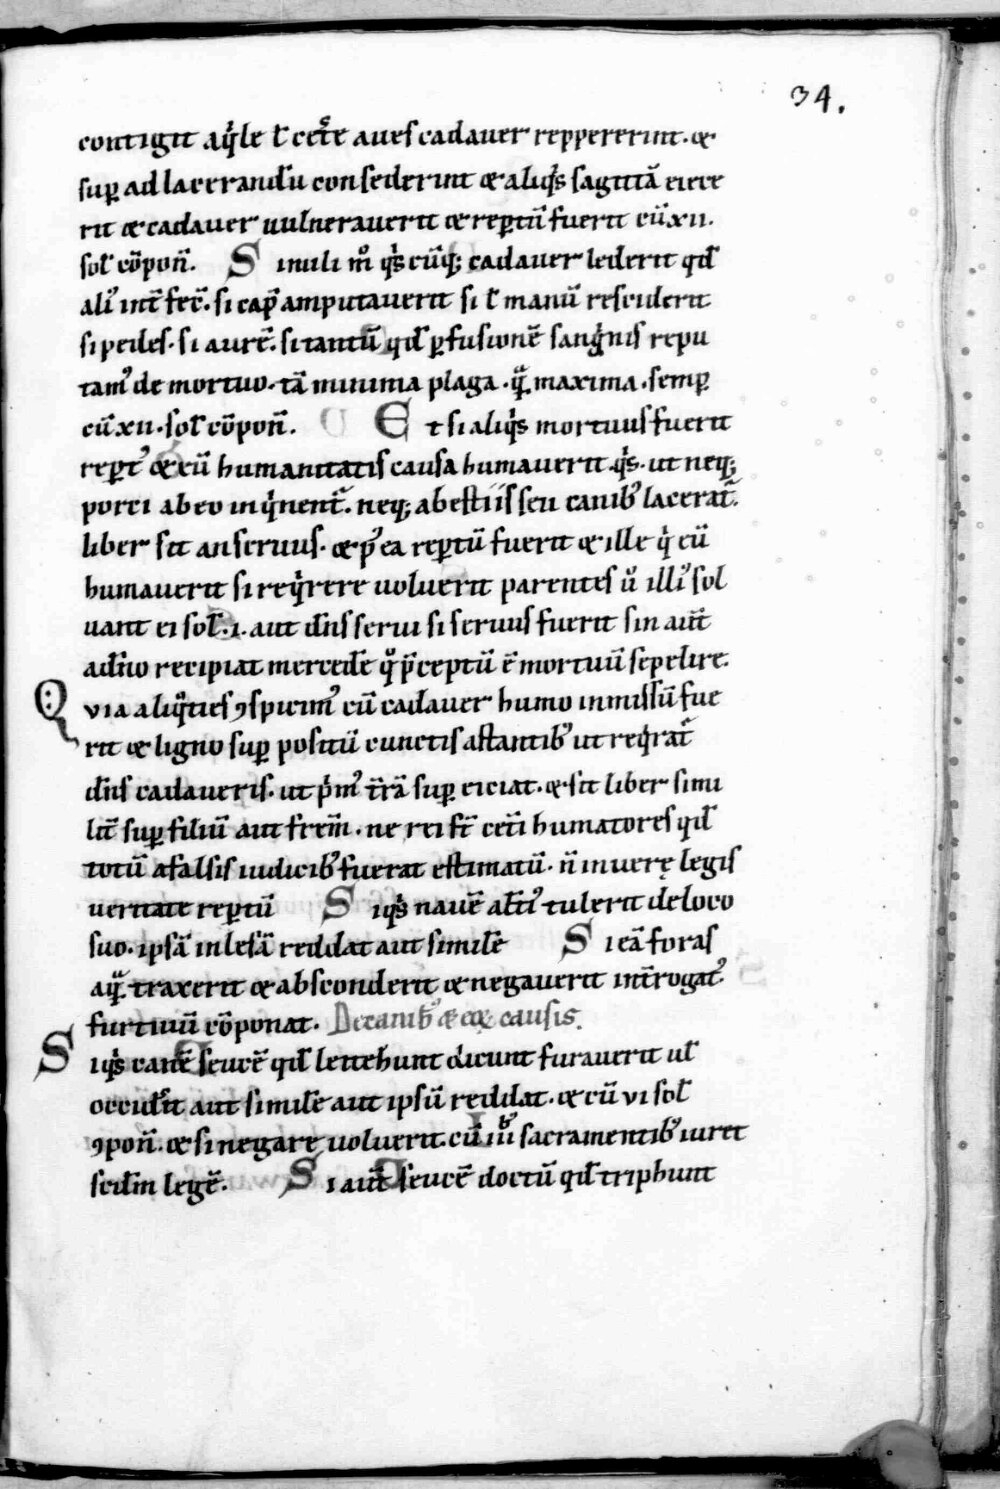 34.
contigit aqͥle ł cet̄e aues cadauer reppererint. &
suꝑ ad lacerandū consederint & aliqͥs sagittā eiece
rit & cadauer uulnerauerit & reꝑtū fuerit cū xii.
sol̄ cōpoñ. Simili mͦ qͥscūq; cadauer lederit qd̄
aliꝰ int̄fec̄. si cap̄ amputauerit si ł manū resciderit
si pedes. si aurē. si tantū qd̄ ꝑfusionē sangͥnis repu
tamꝰ de mortuo. tā minima plaga. qᷓ maxima. semꝑ
cū xii. sol̄ cōpoñ. Et si aliqͥs mortuus fuerit
reꝑtꝰ & cū humanitatis causa humauerit qͥs. ut neq;
porci ab eo inqͥnent᷑. neq; a bestiis seu canibꝰ lacerat᷑.
liber sit an seruus. & p̄ ea reꝑtū fuerit & ille qͥ eū
humauerit si reqͥrere uoluerit parentes ů illiꝰ sol
uant ei sol̄. i. aut dñs serui si seruus fuerit sin aut̄
a dño recipiat mercedē qͦ p̄ceptū ē mortuū sepelire.
Quia aliqͦties ꝯspicimꝰ cū cadauer humo inmissū fue
rit & ligno suꝑ positū cunctis astantibꝰ ut reqͥrat᷑
dñs cadaueris. ut pͥmꝰ t̄rā suꝑ eiciat. & sit liber simi
lit̄ suꝑ filiū aut frēm. ne rei st̄ cet̄i humatores qd̄
totū a falsis iudicibꝰ fuerat estimatū. n̄ in uerę legis
ueritate reꝑtū Siqͥs nauē alt̄iꝰ tulerit de loco
suo. ipsā inlesā reddat aut similē Si eā foras
aqᷓ traxerit & absconderit & negauerit int̄rogatꝰ.
furtiuū cōponat. De canibꝰ & eoꝝ causis.
Siqͥs canē seucē qd̄ leitihunt dicunt furauerit uł
occid̄it aut similē aut ipsū reddat. & cū vi sol̄
ꝯpoñ. & si negare uoluerit. cū iii sacramentibꝰ iuret
scd̄m legē. Si aut̄ seucē doctū qd̄ triphunt